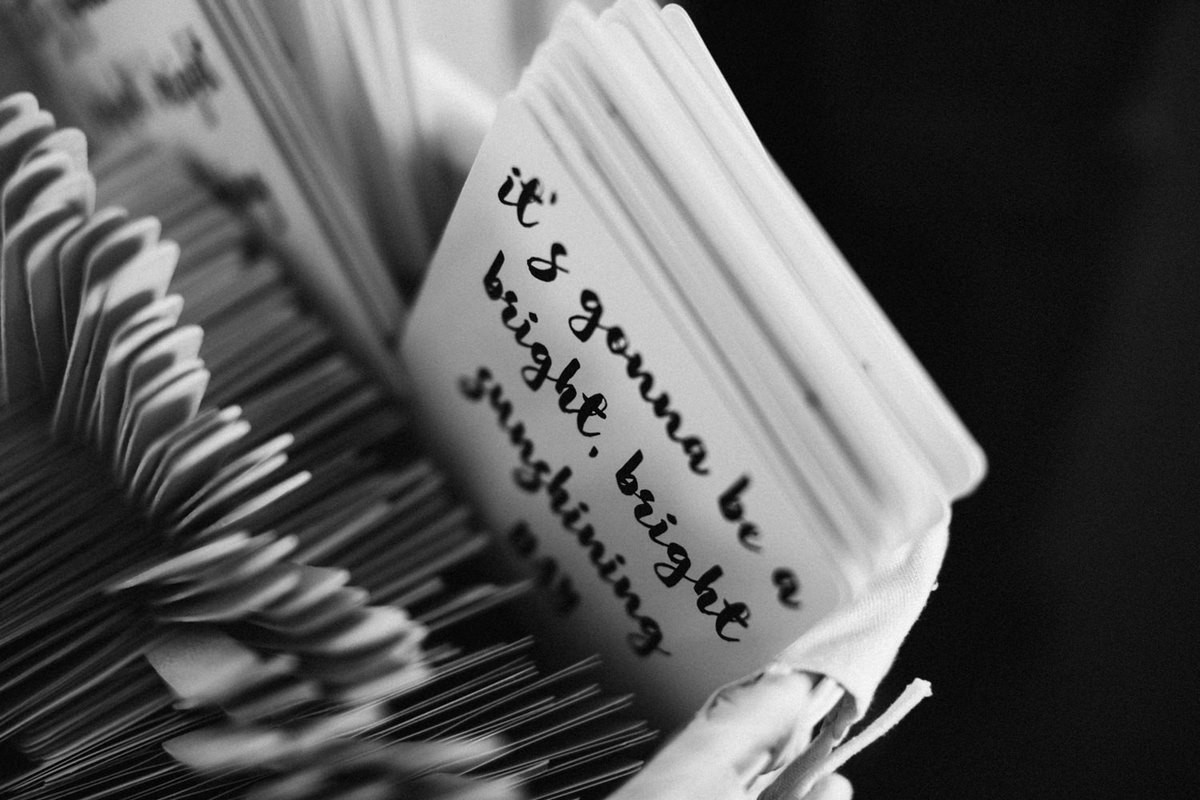 it's gonna be a
bright, bright
sunshining
day